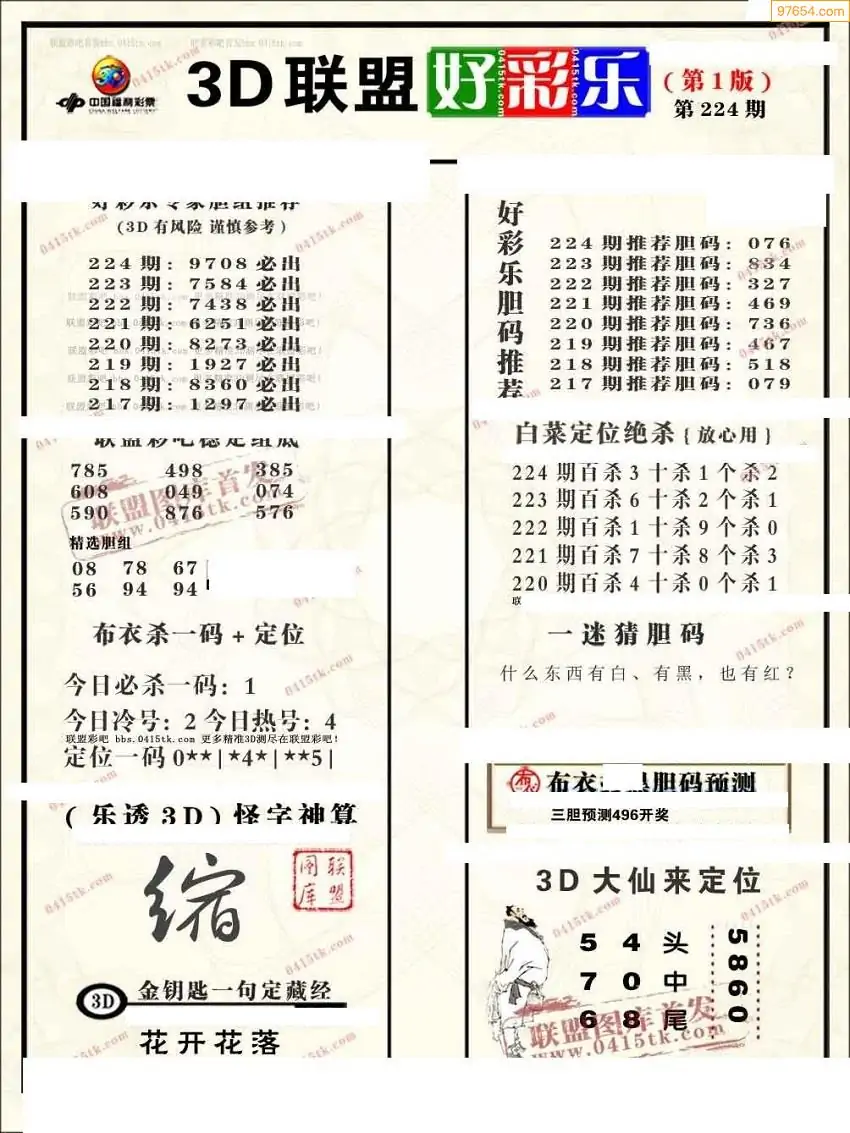 97654.com
3D联盟好彩乐
(第1版)
第224期
中国福利彩票
(3D有风险 谨慎参考)
224期: 9708必出
223期: 7584必出
222期: 7438必出
221期: 6251必出
220期: 8273必出
219期: 1927必出
218期: 8360必出
217期: 1297必出
联盟彩吧稳定组底
785 498 385
608 049 074
590 876 576
精选胆组
08 78 67
56 94 94
布衣杀一码+定位
今日必杀一码: 1
今日冷号: 2 今日热号: 4
联盟彩吧 bbs.0415tk.com 更多精准3D测尽在联盟彩吧!
定位一码0**|*4*|**5|
(乐透3D)怪字神算
缩
联盟图库
3D 金钥匙一句定藏经
花开花落
好彩乐胆码推荐
224期推荐胆码: 076
223期推荐胆码: 834
222期推荐胆码: 327
221期推荐胆码: 469
220期推荐胆码: 736
219期推荐胆码: 467
218期推荐胆码: 518
217期推荐胆码: 079
白菜定位绝杀{放心用}
224期百杀3十杀1个杀2
223期百杀6十杀2个杀1
222期百杀1十杀9个杀0
221期百杀7十杀8个杀3
220期百杀4十杀0个杀1
联
一迷猜胆码
什么东西有白、有黑,也有红?
布衣 胆码预测
三胆预测496开奖
3D大仙来定位
5 4 头
7 0 中
6 8 尾
5860
联盟图库首发
www.0415tk.com
联盟图库首发
www.0415tk.com